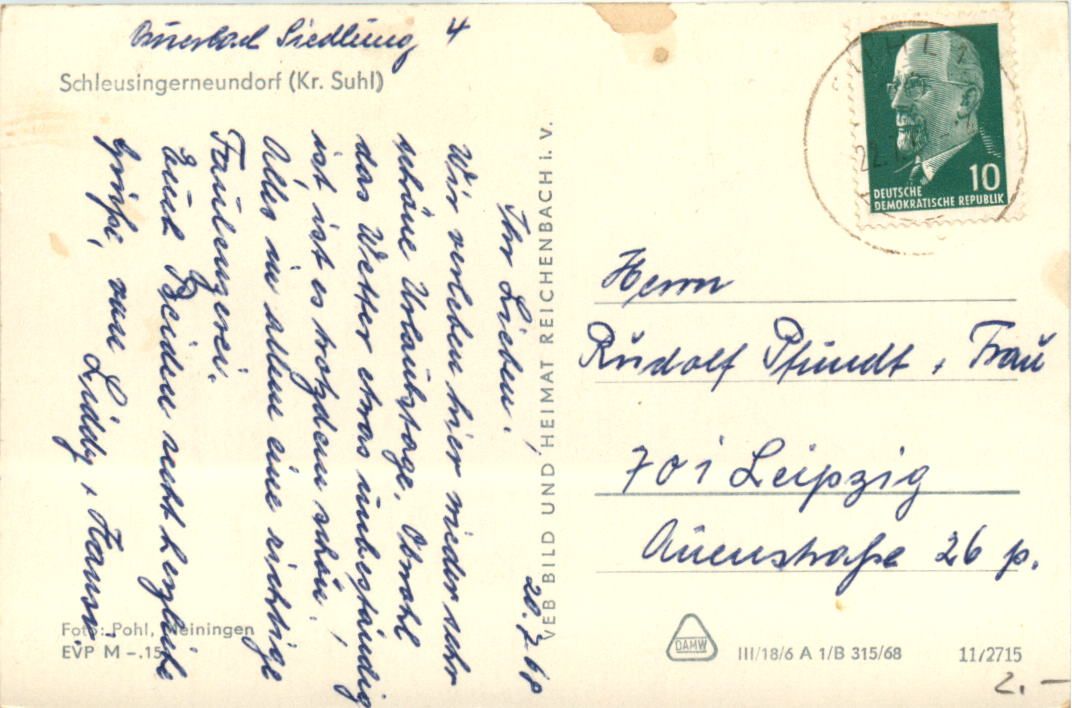 Auerbach Siedlung 4
Schleusingerneundorf (Kr. Suhl)
20.7.68
Ihr Lieben!
Wir verleben hier wieder sehr
schöne Urlaubstage. Obwohl
das Wetter etwas unbeständig
ist, ist es trotzdem schön!
Alles in allem eine richtige
Faulenzerei.
Euch Beiden recht herzliche
Grüße, von Liddy + Hans.
Foto: Pohl, Meiningen
EVP M –.15
VEB BILD UND HEIMAT REICHENBACH i. V.
SUHL 1
22.7.
10
DEUTSCHE
DEMOKRATISCHE REPUBLIK
Herrn
Rudolf Pfundt + Frau
701 Leipzig
Auenstraße 26 p.
DAMW
III/18/6 A 1/B 315/68
11/2715
2.–